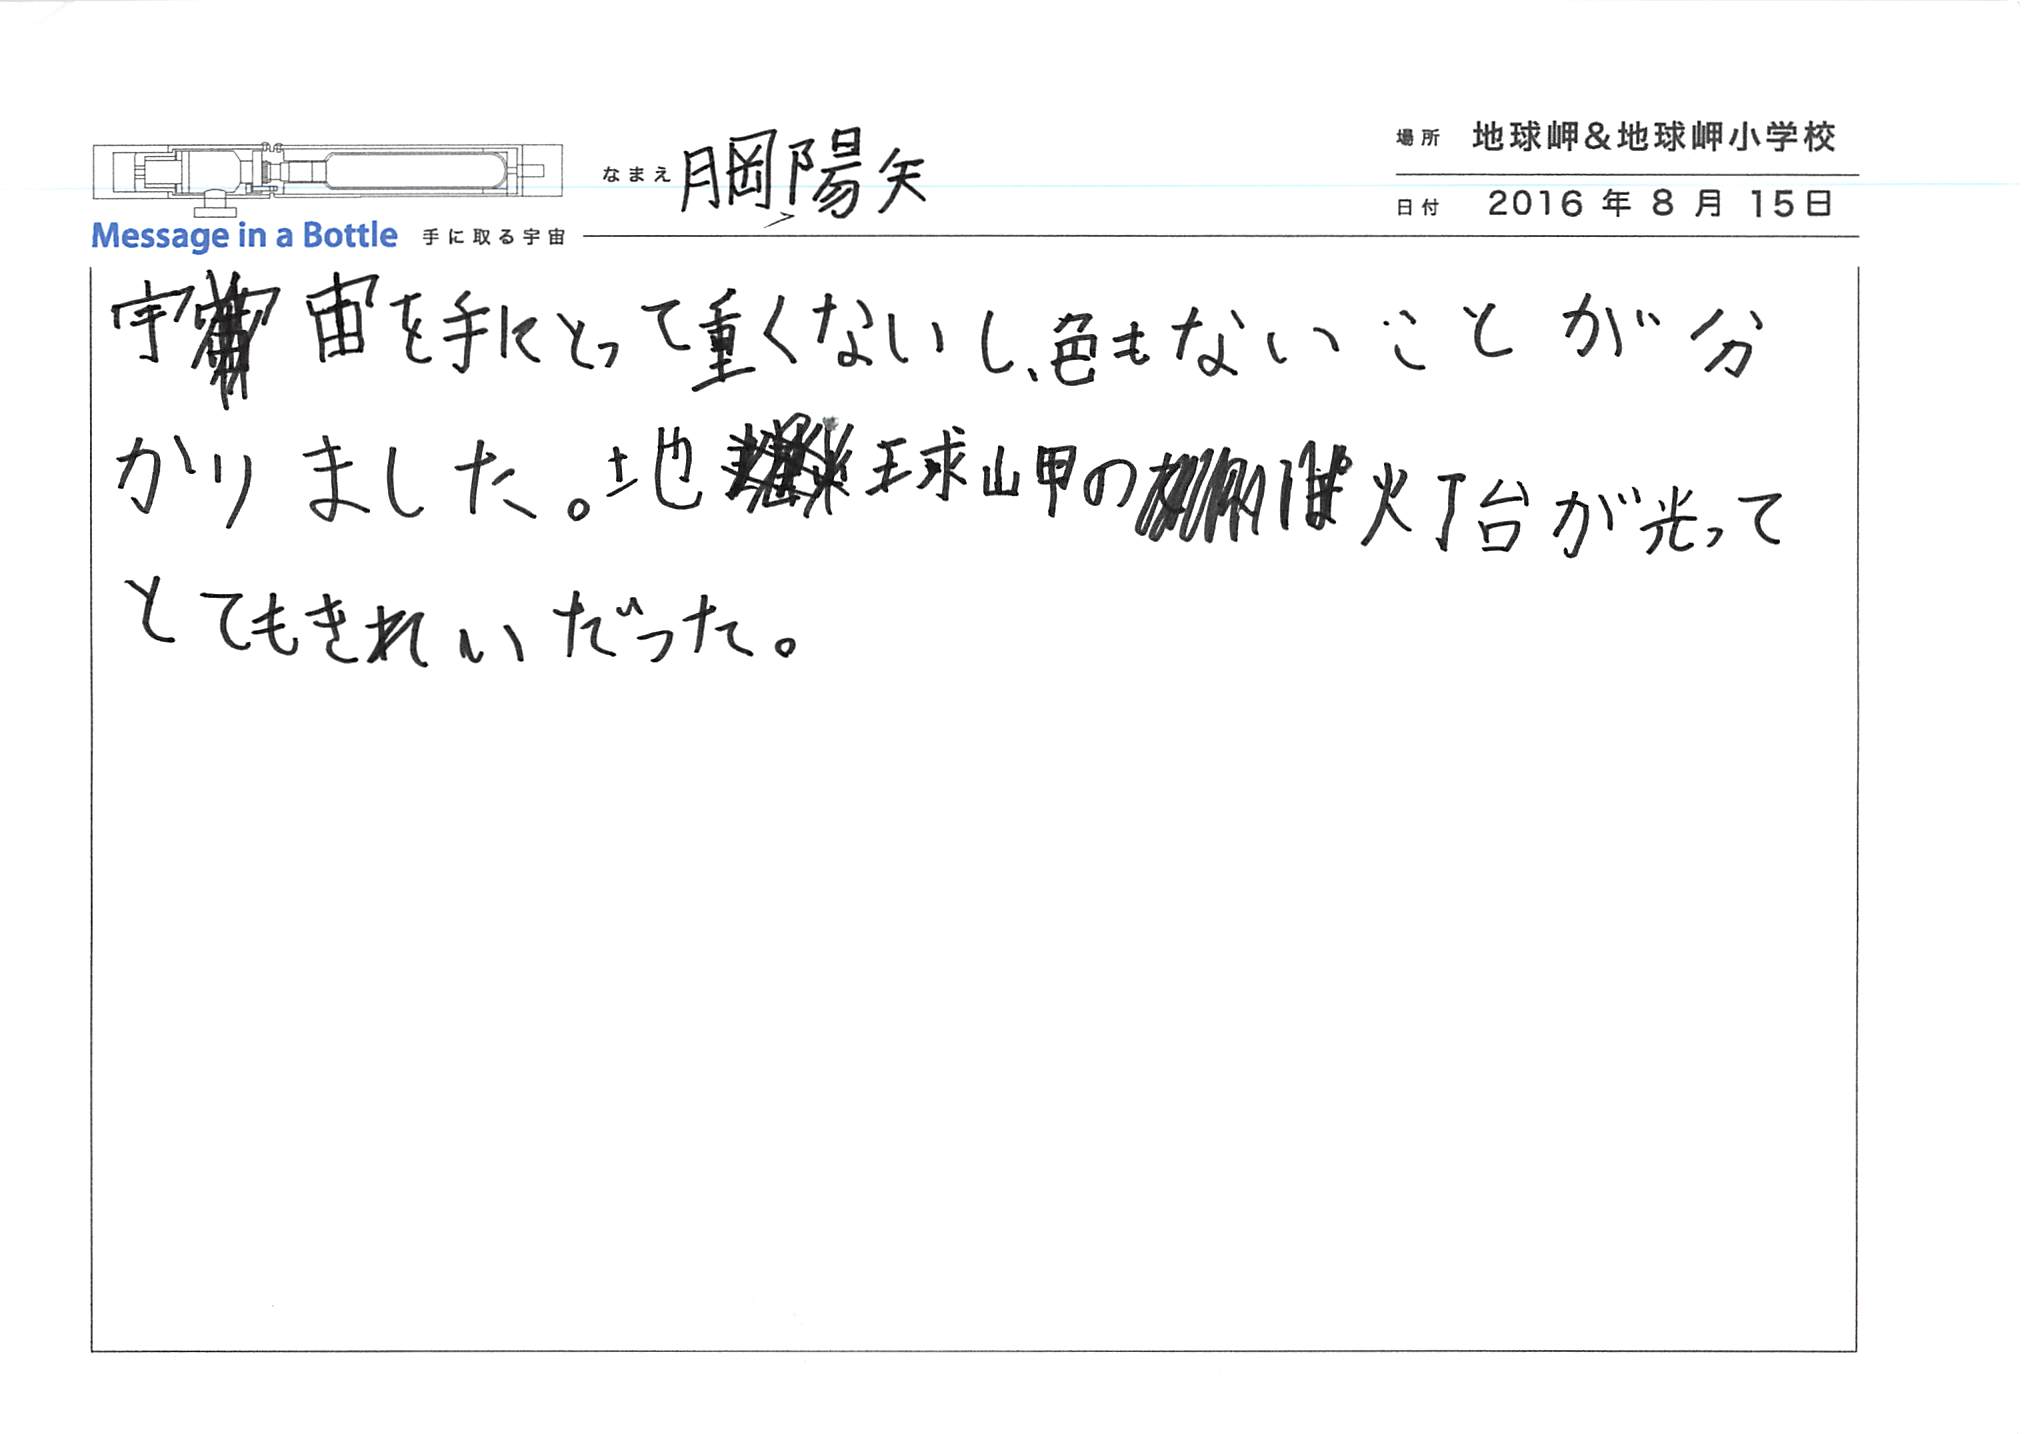 なまえ 月岡陽矢
場所 地球岬&地球岬小学校
日付 2016年8月15日
Message in a Bottle 手に取る宇宙
宇宙を手にとって重くないし、色もないことが分
かりました。地球岬の灯台が光って
とてもきれいだった。